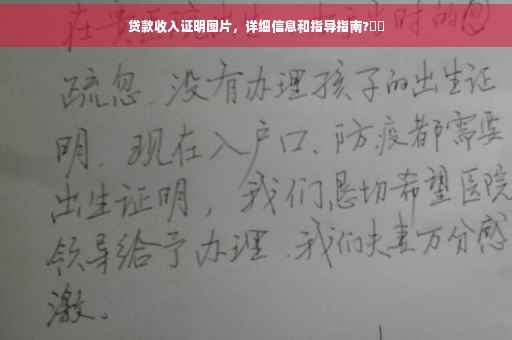 贷款收入证明图片，详细信息和指导指南?
疏忽.没有办理孩子的出生证
明.现在入户口、防疫都需要
出生证明，我们恳切希望医院
领导给予办理.我们夫妻万分感
激。